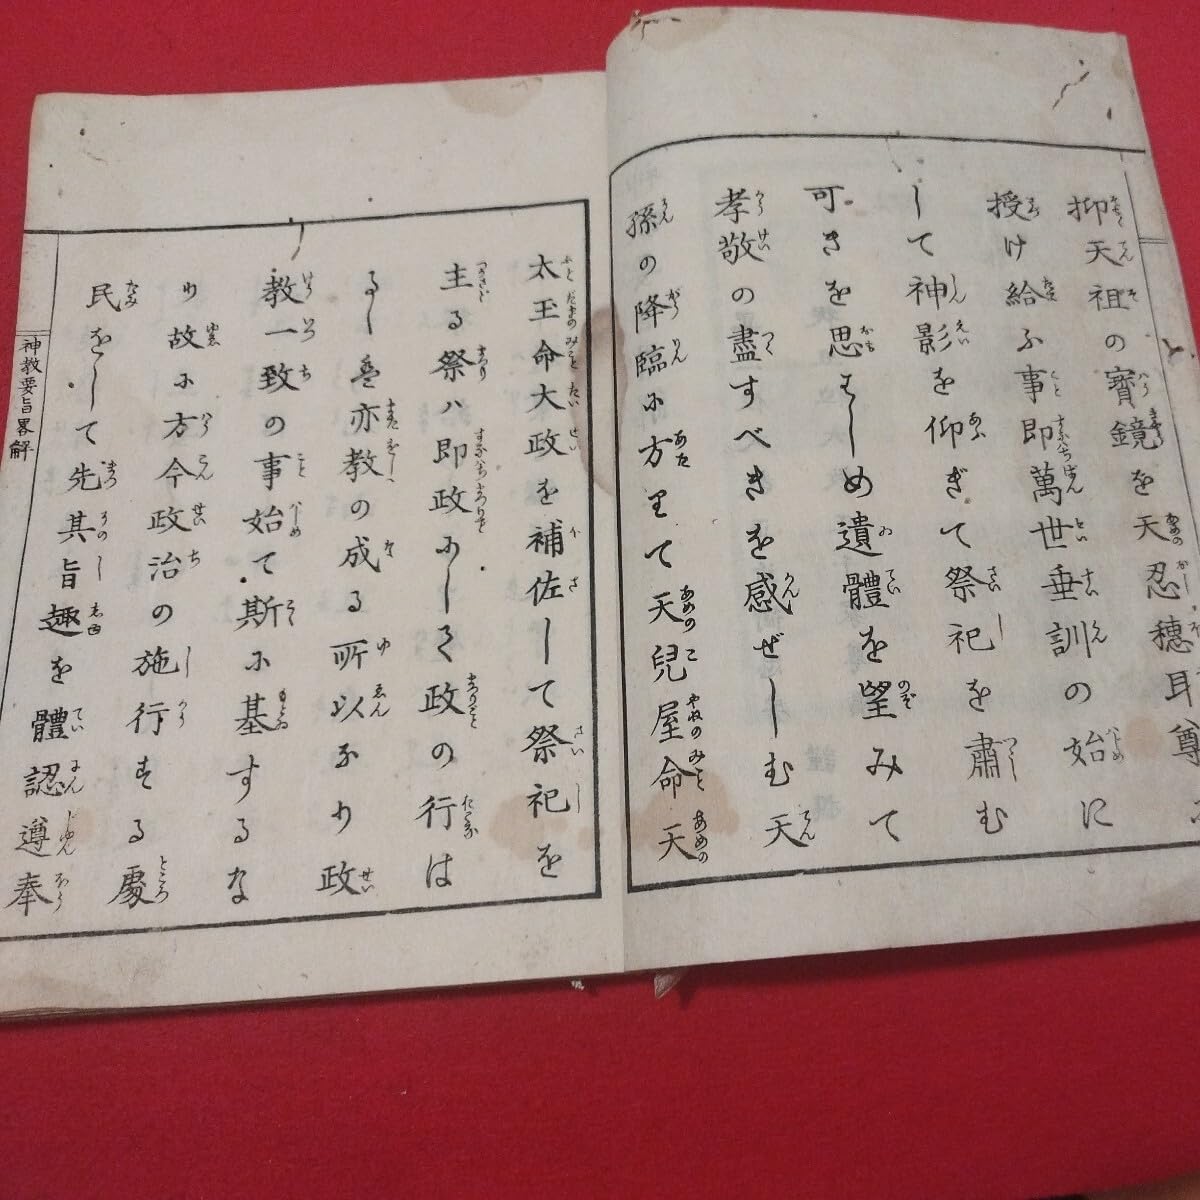 抑天祖の寳鏡を天忍穗耳尊に
授け給ふ事即萬世垂訓の始に
して神影を仰ぎて祭祀を肅む
可きを思はしめ遺體を望みて
孝敬の盡すべきを感ぜしむ天
孫の降臨に方りて天兒屋命天
太玉命大政を補佐して祭祀を
主る祭ハ即政にして政の行は
るし是亦教の成る所以なり政
教一致の事始て斯に基するな
り故に方今政治の施行する處
民をして先其旨趣を體認遵奉
神教要旨畧解